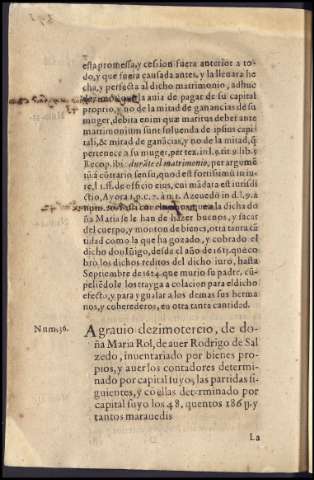 esta promessa, y cession fuera anterior a to-
do, y que fuera causada antes, y la lleuara he
cha, y perfecta al dicho matrimonio, adhuc
la auia de pagar de su capital
proprio, y no de la mitad de ganancias de su
muger, debita enim quæ maritus debet ante
matrimonium sunt soluenda de ipsius capi-
tali, & mitad de ganãcias, y no de la mitad, q̃
pertenece a su muger, per tex. in l. 9. tit. 9. lib. 5
Recop. ibi: durãte el matrimonio, per argumẽ
tũ à cõtrario sensu, quod est fortissimũ in iu-
re, l. 1. ff. de officio eius, cui mãdata est iurisdi-
ctio, Ayora 1. p. c. 7. à n. 1. Azeuedo in d. l. 9. à
a la dicha do
ña Maria se le han de hazer buenos, y sacar
del cuerpo, y monton de bienes, otra tanta cã
tidad como la que ha gozado, y cobrado el
dicho don Iñigo, desde el año de 1613. que co
brò los dichos reditos del dicho iuro, hasta
Septiembre de 1624. que murio su padre, cũ-
peliẽdole los trayga a colacion para el dicho
efecto, y para ygualar a los demas sus herma
nos, y cohe rederos, en otra tanta cantidad.
Num. 36. Agrauio dezimotercio, de do-
ña Maria Rol, de auer Rodrigo de Sal
zedo, inuentariado por bienes pro-
pios, y auer los contadores determi-
nado por capital suyos, las partidas si-
guientes, y cõ ellas determinado por
capital suyo los 48. quentos 186 y
tantos marauedis
La